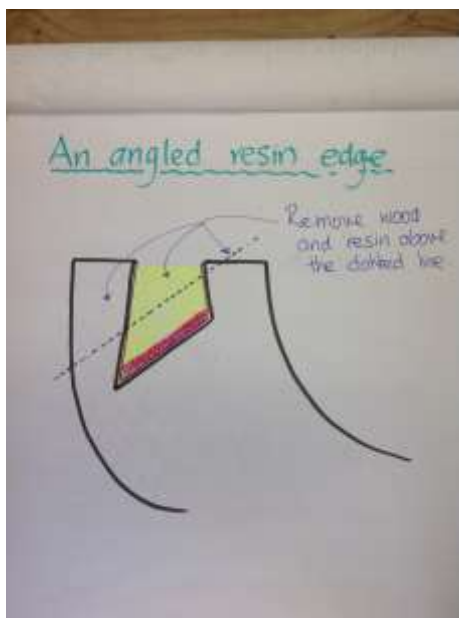 An angled resin edge
Remove wood
and resin above
the dotted line